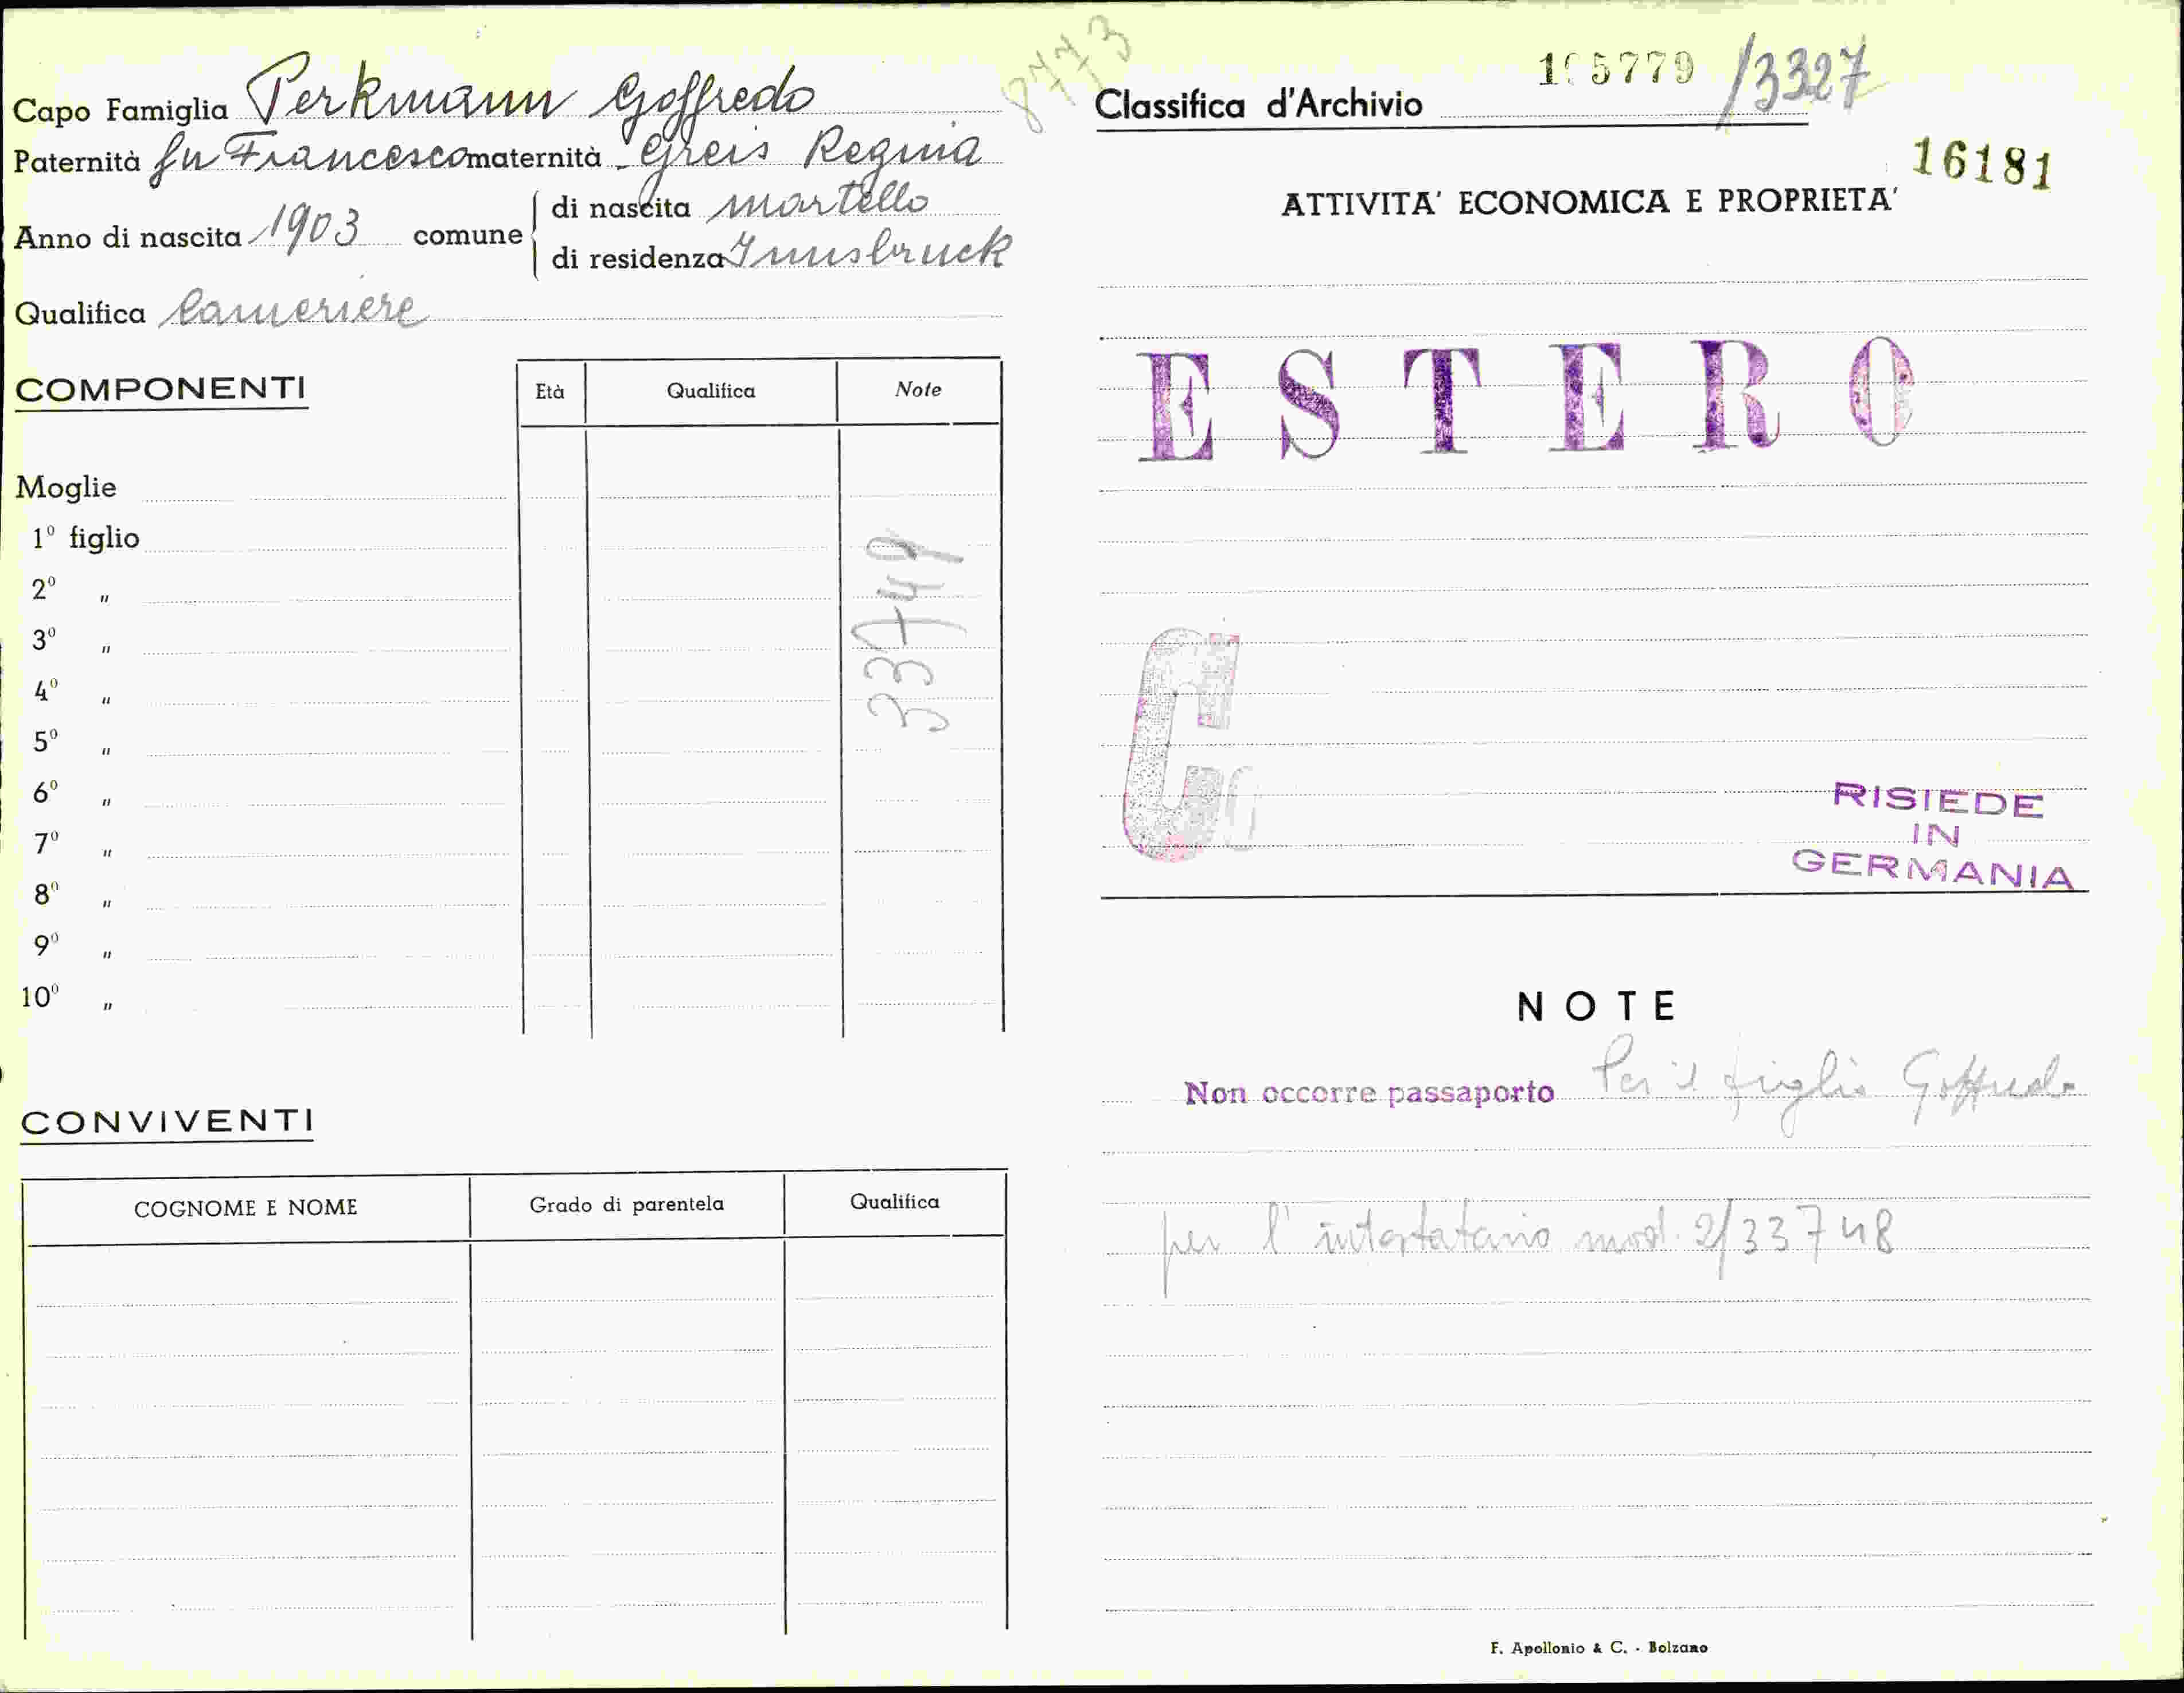 Capo Famiglia Perkmann Goffredo
Paternità fu Francesco maternità Greis Regina
Anno di nascita 1903 comune
di nascita Martello
di residenza Innsbruck
Qualifica Cameriere
COMPONENTI
Età Qualifica Note
Moglie
1º figlio
2º "
3º "
4º "
5º "
6º "
7º "
8º "
9º "
10º "
33749
CONVIVENTI
COGNOME E NOME Grado di parentela Qualifica
8773
105779 /3327
Classifica d'Archivio
16181
ATTIVITA' ECONOMICA E PROPRIETA'
ESTERO
C
RISIEDE
IN
GERMANIA
NOTE
Non occorre passaporto Per il figlio Goffredo
per l'intestatario mod. 2/33748
F. Apollonio & C. - Bolzano